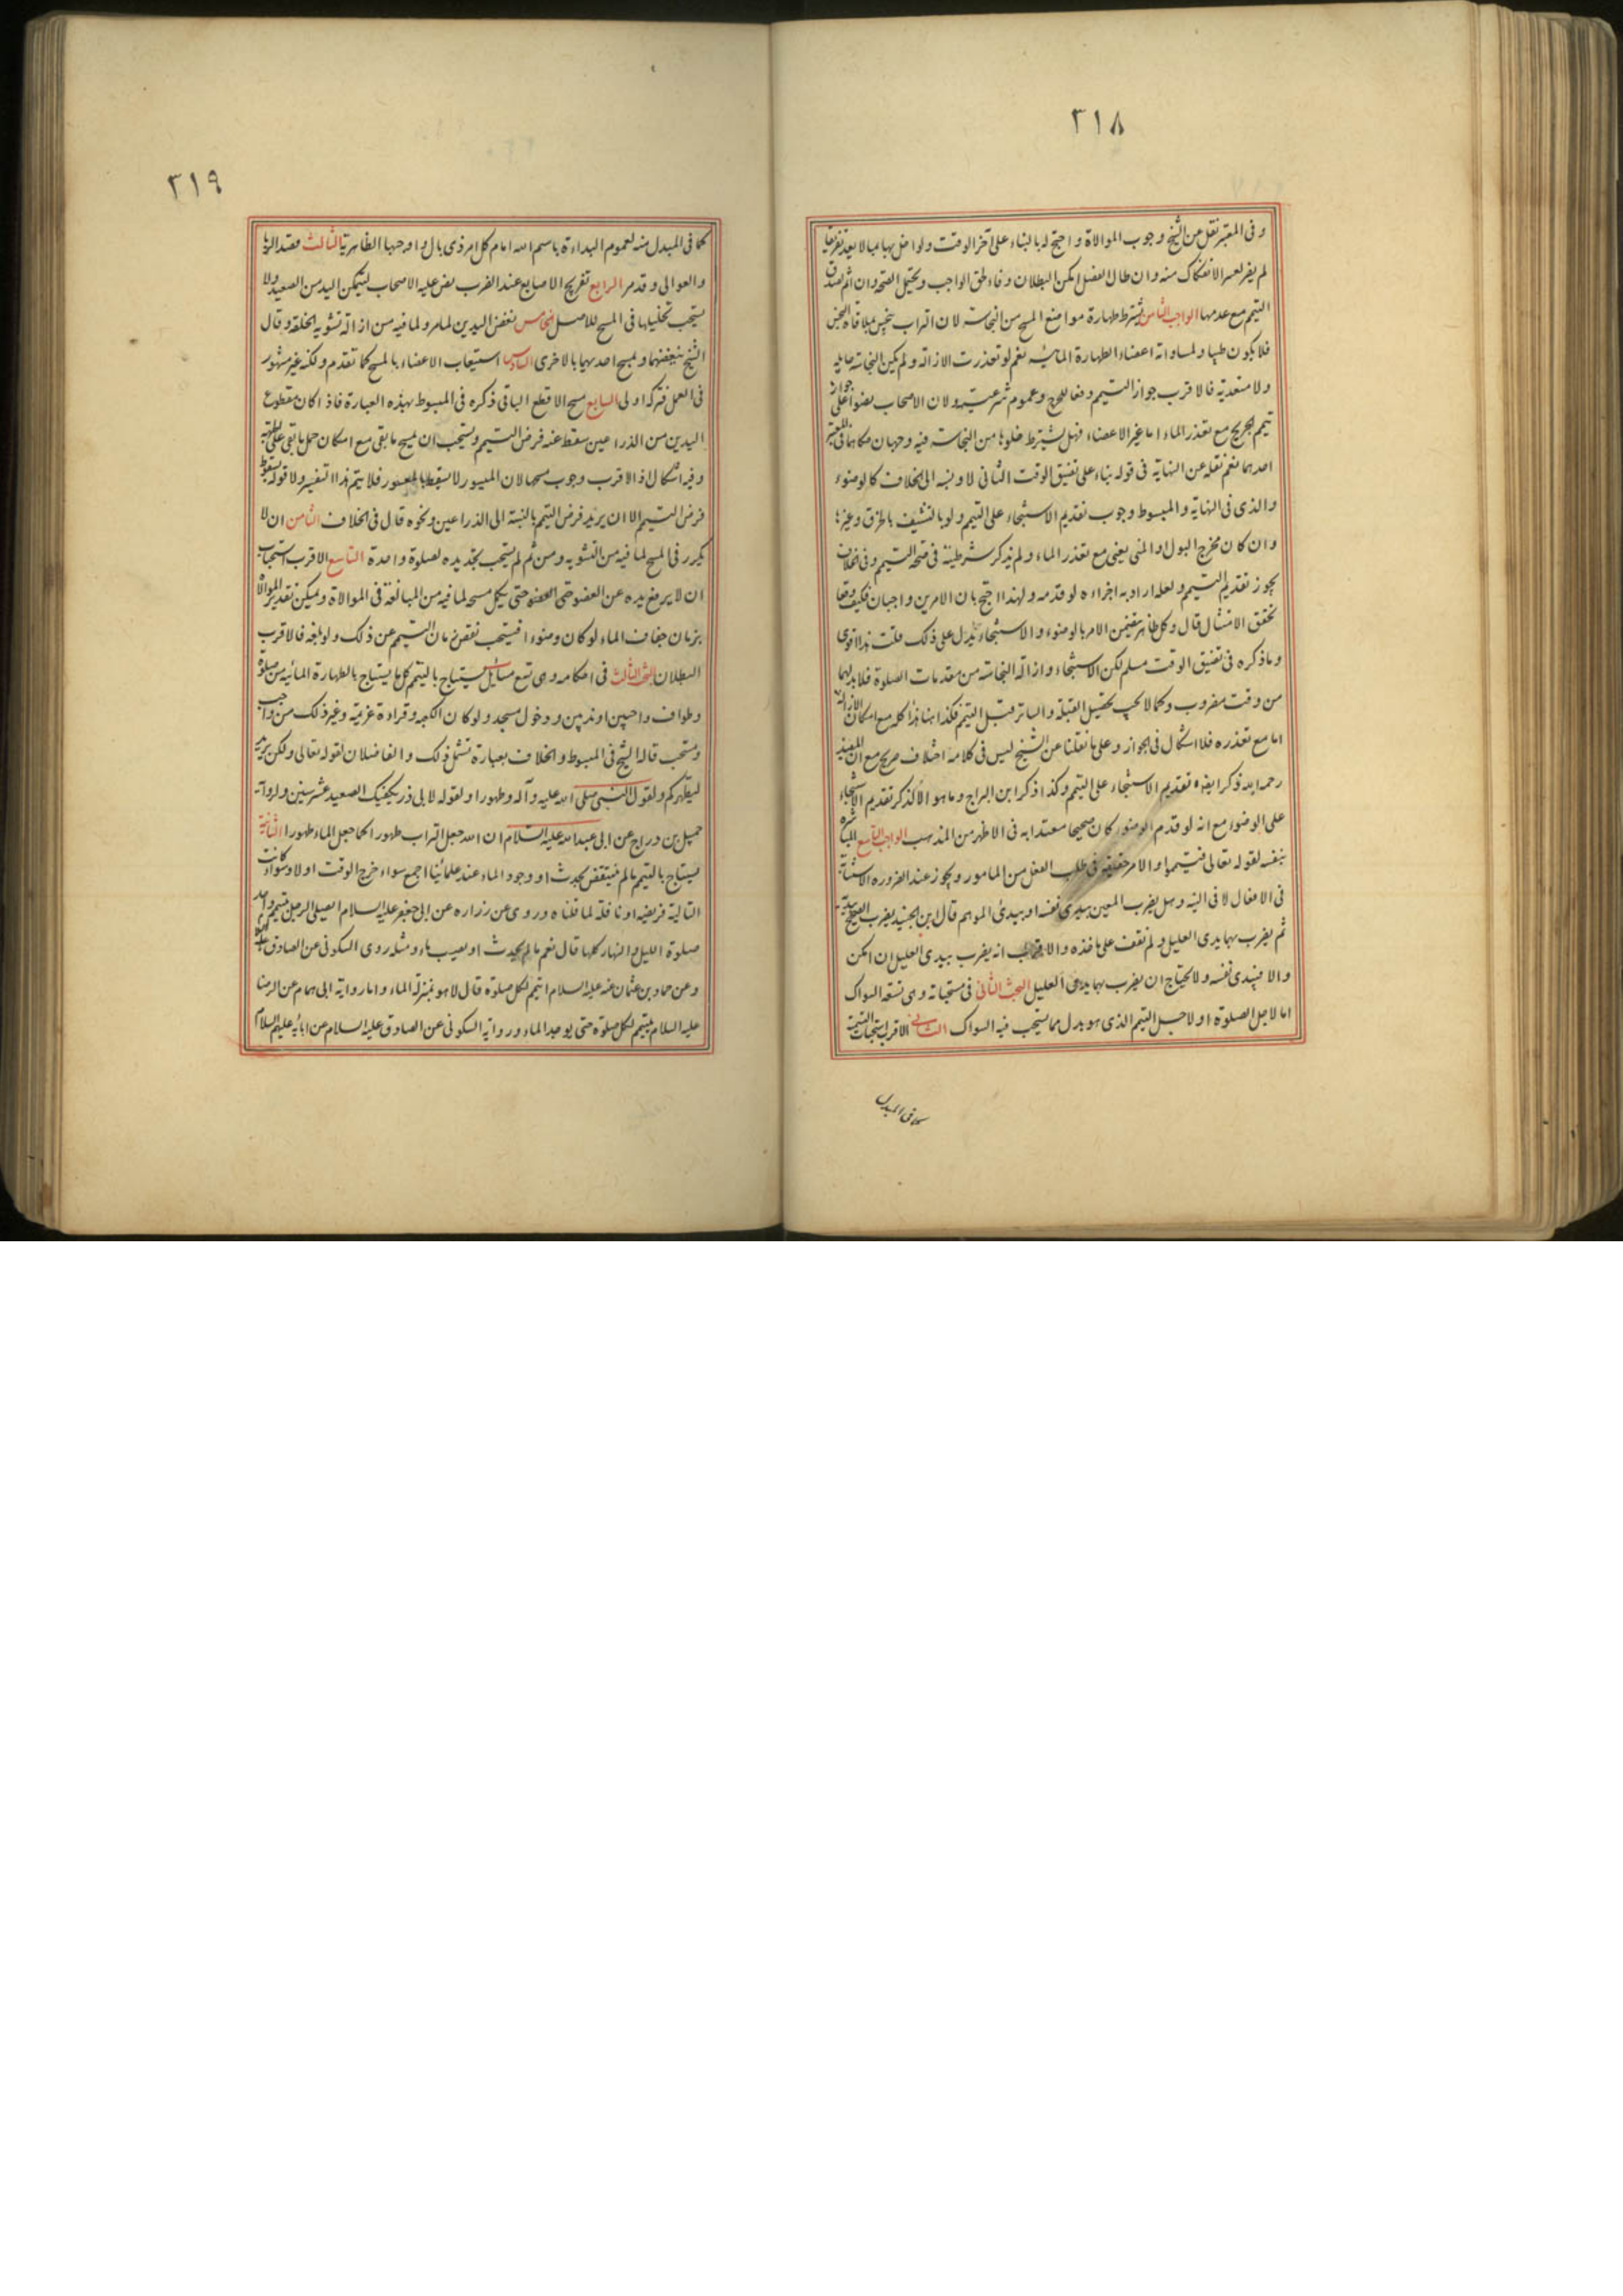 ٣١٨
و فى المعتبر نقل عن الشيخ وجوب الموالاة و احتج له بالبناء على آخر الوقت ولو اخل بها بما لا يعد تفريقا
لم يضر لعسر الانفكاك منه و ان طال الفصل امكن البطلان وفاء بحق الواجب و يحتمل الصحة و ان اثم لصدق
التيمم مع عدمها الواجب الثامن يشترط طهارة مواضع المسح من النجاسة لان التراب ينجس بملاقاة النجس
فلا يكون طيبا و لمساواته اعضاء الطهارة المائية نعم لو تعذرت الازالة و لم يكن النجاسة حايلة
ولا متعدية فالاقرب جواز التيمم دفعا للحرج و عموم شرعيته و لان الاصحاب نصوا على جواز
تيمم الجريح مع تعذر الماء اما غير الاعضاء فهل يشترط خلوها من النجاسة فيه وجهان حكاهما فى المعتبر
احدهما نعم نقله عن النهاية فى قوله بناء على تضيق الوقت الثانى لا و نسبه الى الخلاف كالوضوء
والذى فى النهاية و المبسوط وجوب تقديم الاستنجاء على التيمم و لو بالتنشيف بالخرق و غيرها
و ان كان مخرج البول او المنى يعنى مع تعذر الماء و لم يذكر شرطيته فى صحة التيمم و فى الخلاف
يجوز تقديم التيمم و لعله اراد به اجزاءه لو قدمه و لهذا احتج بان الامرين واجبان فكيف وقعا
تحقق الامتثال قال و كل ظاهر يتضمن الامر بالوضوء و الاستنجاء يدل على ذلك قلت هذا قوى
و ما ذكره فى تضيق الوقت مسلم لكن الاستنجاء و ازالة النجاسة من مقدمات الصلوة فلا بد لهما
من وقت مضروب و كما لا يجب تحصيل القبلة و الساتر قبل التيمم فكذا هنا هذا كله مع امكان الازالة
اما مع تعذره فلا اشكال فى الجواز و على ما نقلنا عن الشيخ ليس فى كلامه اختلاف صريح مع ان المفيد
رحمه الله ذكر ايضا تقديم الاستنجاء على التيمم و كذا ذكر ابن البراج و ما هو الا كذكر تقديم الاستنجاء
على الوضوء مع انه لو قدم الوضوء كان صحيحا معتدا به فى الاظهر من المذهب الواجب التاسع المباشرة
بنفسه لقوله تعالى فتيمموا و الامر حقيقة فى طلب الفعل من المامور و يجوز عند الضرورة الاستنابة
فى الافعال لا فى النية و هل يضرب المعين بيدى نفسه او بيدى الموهم قال ابن الجنيد يضرب الصحيح بيديه
ثم يضرب بهما يدى العليل و لم نقف على ماخذه و الاقرب انه يضرب بيدى العليل ان امكن
و الا فبيدى نفسه و لا يحتاج ان يضرب بهما يدى العليل البحث الثانى فى مستحباته و هى تسعة السواك
اما لاجل الصلوة او لاجل التيمم الذى هو بدل مما يستحب فيه السواك الثانى الاقرب استحباب التسمية
كما فى المبدل
٣١٩
كما فى المبدل منه لعموم البداءة باسم الله امام كل امر ذى بال و اوجبها الظاهرية الثالث قصد الربا
و العوالى و قد مر الرابع تفريج الاصابع عند الضرب نص عليه الاصحاب ليتمكن اليد من الصعيد و لا
يستحب تخليلها فى المسح للاصل الخامس نفض اليدين لما مر و لما فيه من ازالة تشويه الخلقة و قال
الشيخ ينفضهما و يمسح احديهما بالاخرى السادس استيعاب الاعضاء بالمسح كما تقدم و لكنه غير مشهور
فى العمل فتركه اولى السابع مسح الاقطع الباقى ذكره فى المبسوط بهذه العبارة فاذا كان مقطوع
اليدين من الذراعين سقط عنه فرض التيمم و يستحب ان يمسح ما بقى مع امكان حمل ما بقى على
و فيه اشكال اذ الاقرب وجوب مسحها لان الميسور لا يسقط بالمعسور فلا يتم هذا التفسير و لا قوله بسقوط
فرض التيمم الا ان يريد فرض التيمم بالنسبة الى الذراعين و نحوه قال فى الخلاف الثامن ان لا
يكرر فى المسح لما فيه من التشويه و من ثم لم يستحب تجديده لصلوة واحدة التاسع الاقرب استحباب
ان لا يرفع يده عن العضو حتى يكمل مسحه لما فيه من المبالغة فى الموالاة و يمكن تقدير الموالاة
بزمان جفاف الماء لو كان وضوءا فيستحب نقص زمان التيمم عن ذلك و لو بلغه فالاقرب
البطلان البحث الثالث فى احكامه و هى تسع مسايل يستباح بالتيمم كل ما يستباح بالطهارة المائية من صلوة
و طواف واجبين او ندبين و دخول مسجد و لو كان الكعبة و قراءة عزيمة و غير ذلك من واجب
و مستحب قاله الشيخ فى المبسوط و الخلاف بعبارة تشمل ذلك و الفاضلان لقوله تعالى و لكن يريد
ليطهركم و لقول النبى صلى الله عليه و آله و طهورا و لقوله لابى ذر يكفيك الصعيد عشر سنين و لرواية
جميل بن دراج عن ابى عبد الله عليه السلام ان الله جعل التراب طهورا كما جعل الماء طهورا الثانية
يستباح بالتيمم ما لم ينتقض بحدث او وجود الماء عند علمائنا اجمع سواء خرج الوقت او لا و سواء كانت
التالية فريضة او نافلة لما قلناه و روى عن زرارة عن ابى جعفر عليه السلام ايصلى الرجل بتيمم واحد
صلوة الليل و النهار كلها قال نعم ما لم يحدث او يصيب ماء و مثله روى السكونى عن الصادق عليه السلام
و عن حماد بن عثمان عنه عليه السلام اتيمم لكل صلوة قال لا هو بمنزلة الماء و اما رواية ابى همام عن الرضا
عليه السلام يتيمم لكل صلوة حتى يوجد الماء و رواية السكونى عن الصادق عليه السلام عن ابائه عليهم السلام